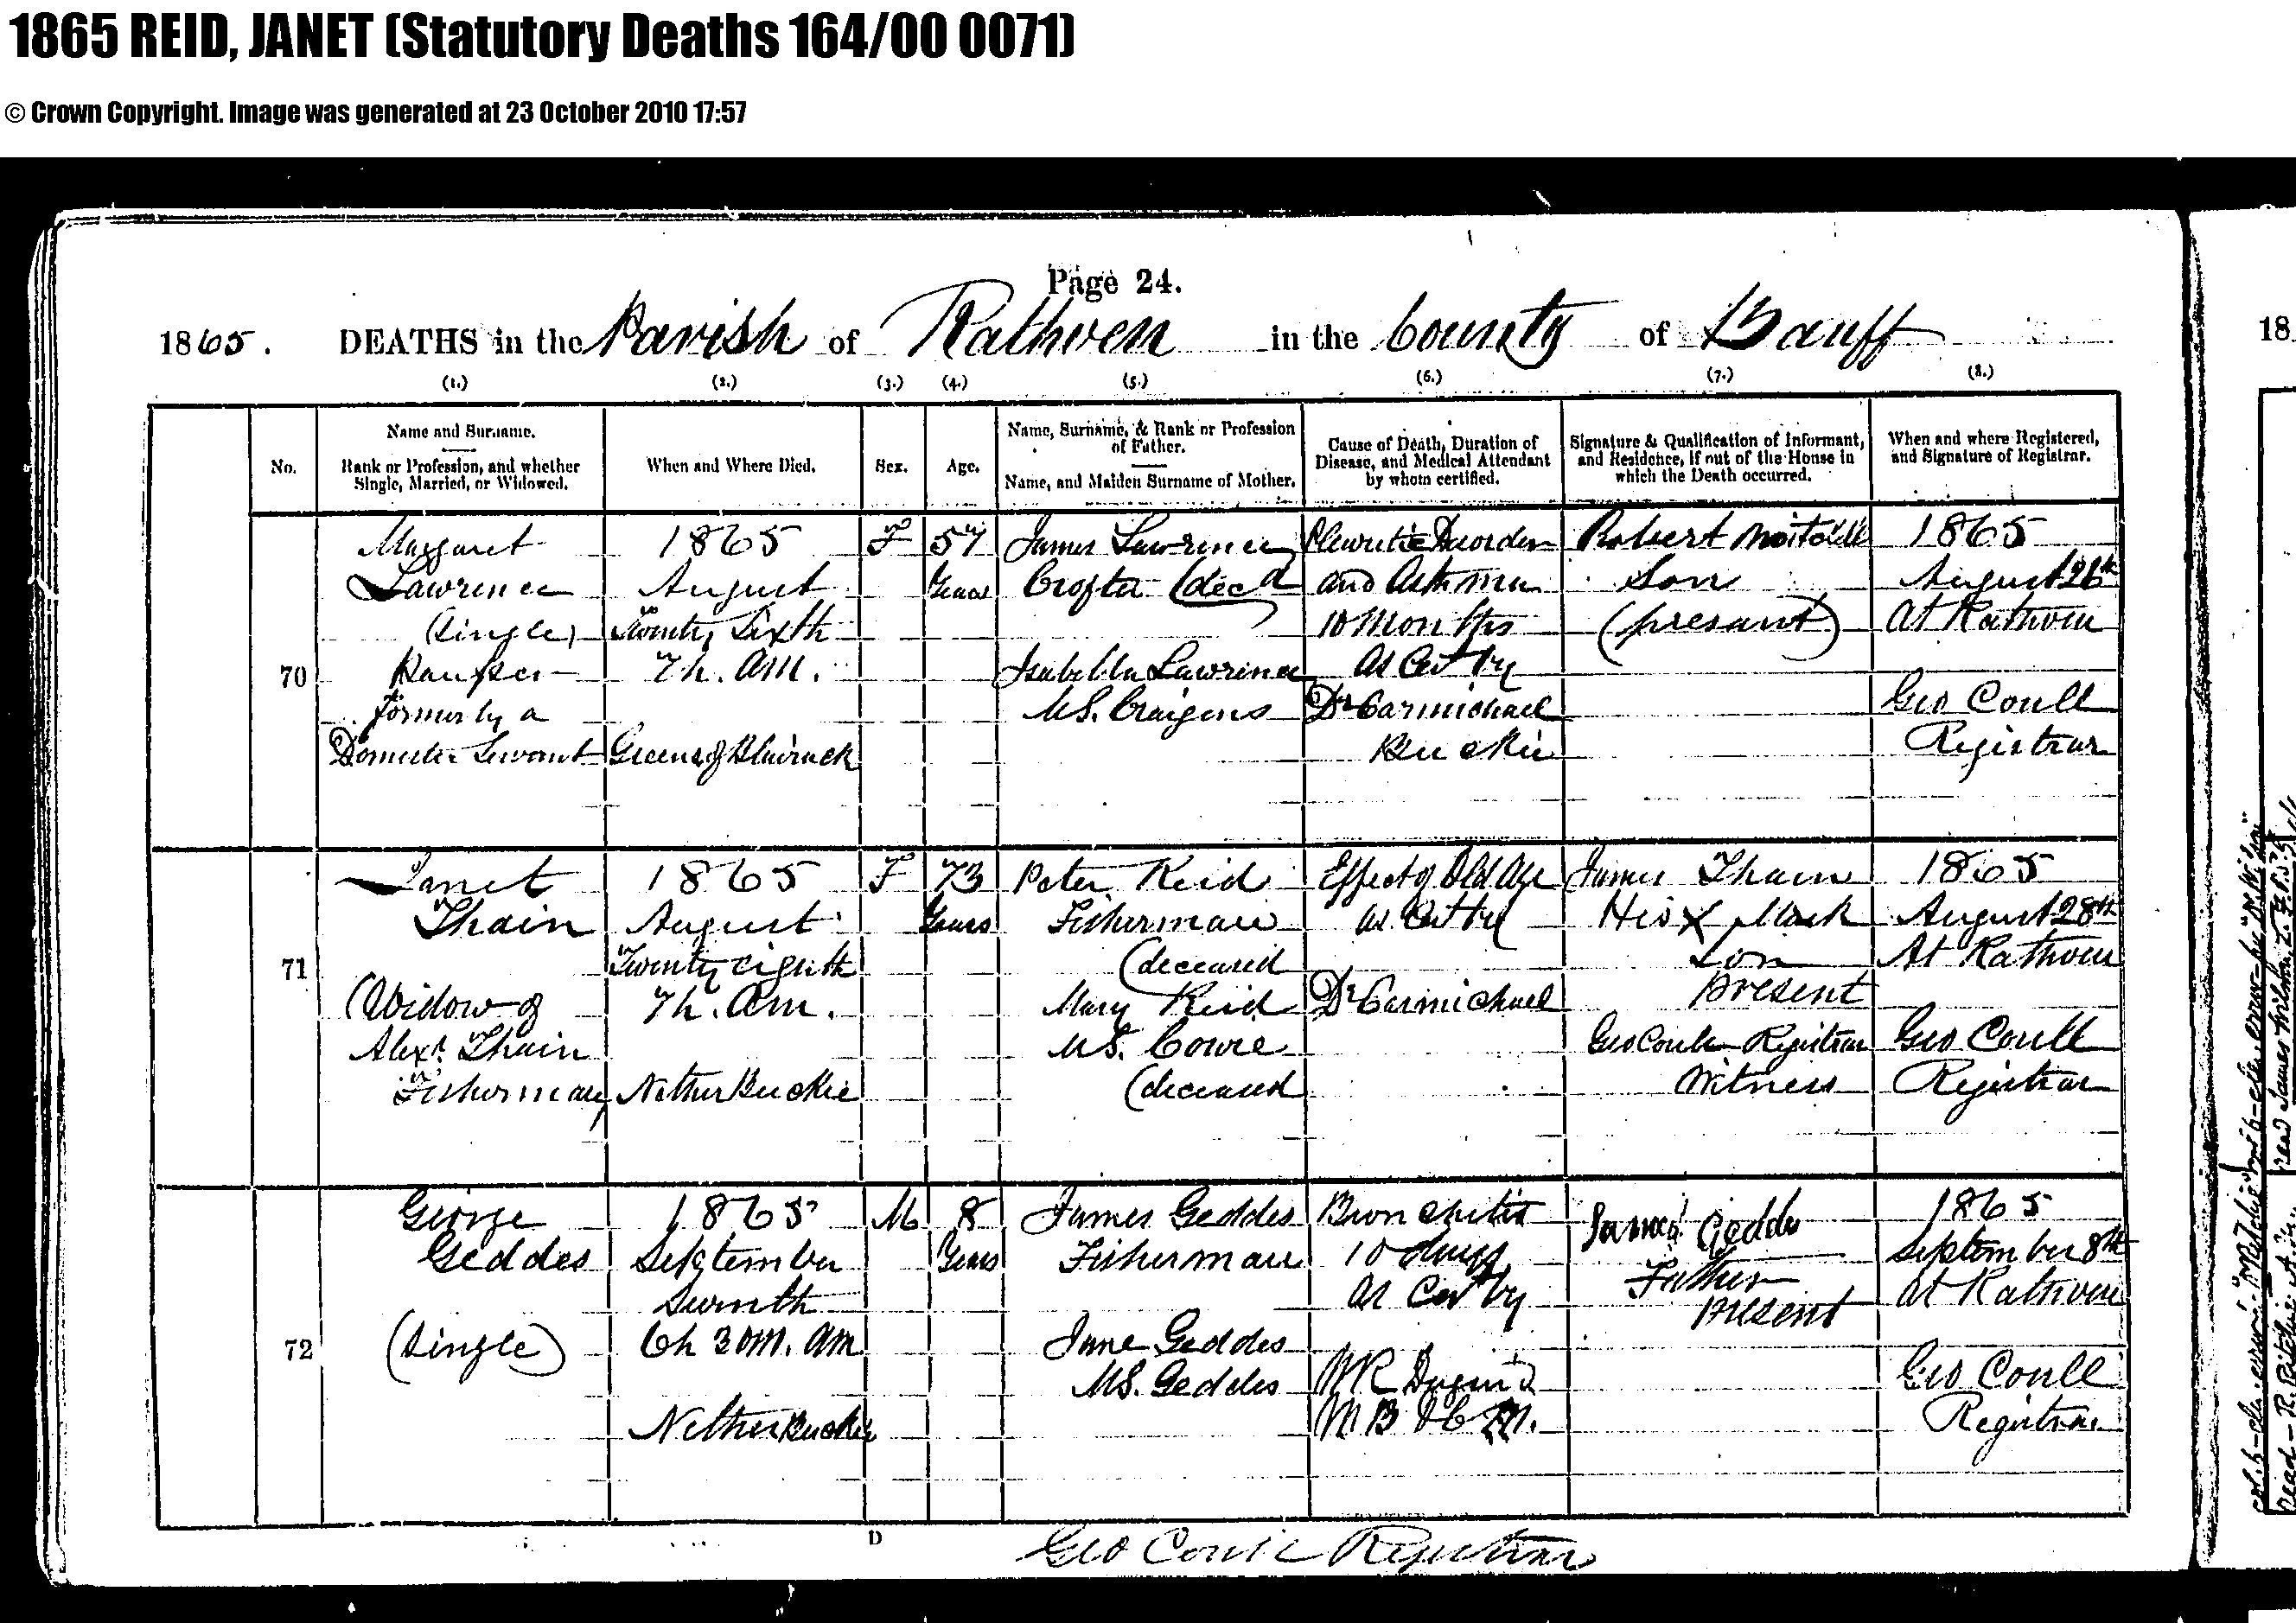 1865 REID, JANET (Statutory Deaths 164/00 0071)
© Crown Copyright. Image was generated at 23 October 2010 17:57
Page 24.
1865. DEATHS in the Parish of Rathven in the County of Banff
(1.) (2.) (3.) (4.) (5.) (6.) (7.) (8.)
No.
Name and Surname.
Rank or Profession, and whether
Single, Married, or Widowed.
When and Where Died.
Sex.
Age.
Name, Surname, & Rank or Profession
of Father.
Name, and Maiden Surname of Mother.
Cause of Death, Duration of
Disease, and Medical Attendant
by whom certified.
Signature & Qualification of Informant,
and Residence, if out of the House in
which the Death occurred.
When and where Registered,
and Signature of Registrar.
70
Margaret
Lawrence
(Single)
Pauper
formerly a
Domestic Servant
1865
August
Twenty Sixth
7h. AM.
Greens of Blairock
F
57
Years
James Lawrence
Crofter (decd
Isabella Lawrence
MS. Craigens
and Asthma
10 Months
As Cert by
Dr Carmichael
Buckie
Robert
Son
(present)
1865
August 26th
At Rathven
Geo Coull
Registrar
71
Janet
Thain
(Widow of
Alexr. Thain
Fisherman)
1865
August
Twenty eighth
7h. AM.
Nether Buckie
F
73
Years
Peter Reid
Fisherman
(deceased
Mary Reid
MS. Cowie
(deceased
Effect of Old Age
as Cert by
Dr Carmichael
James Thain
His X Mark
Son
Present
Geo Coull Registrar
Witness
1865
August 28th
At Rathven
Geo Coull
Registrar
72
George
Geddes
(Single)
1865
September
Seventh
6h 30m. AM
Nether Buckie
M
8
Years
James Geddes
Fisherman
Jane Geddes
MS. Geddes
Bronchitis
10 days
As Cert by
WR Duguid
MB & CM.
James Geddes
Father
Present
1865
September 8th
At Rathven
Geo Coull
Registrar
D
Geo Coull Registrar
18